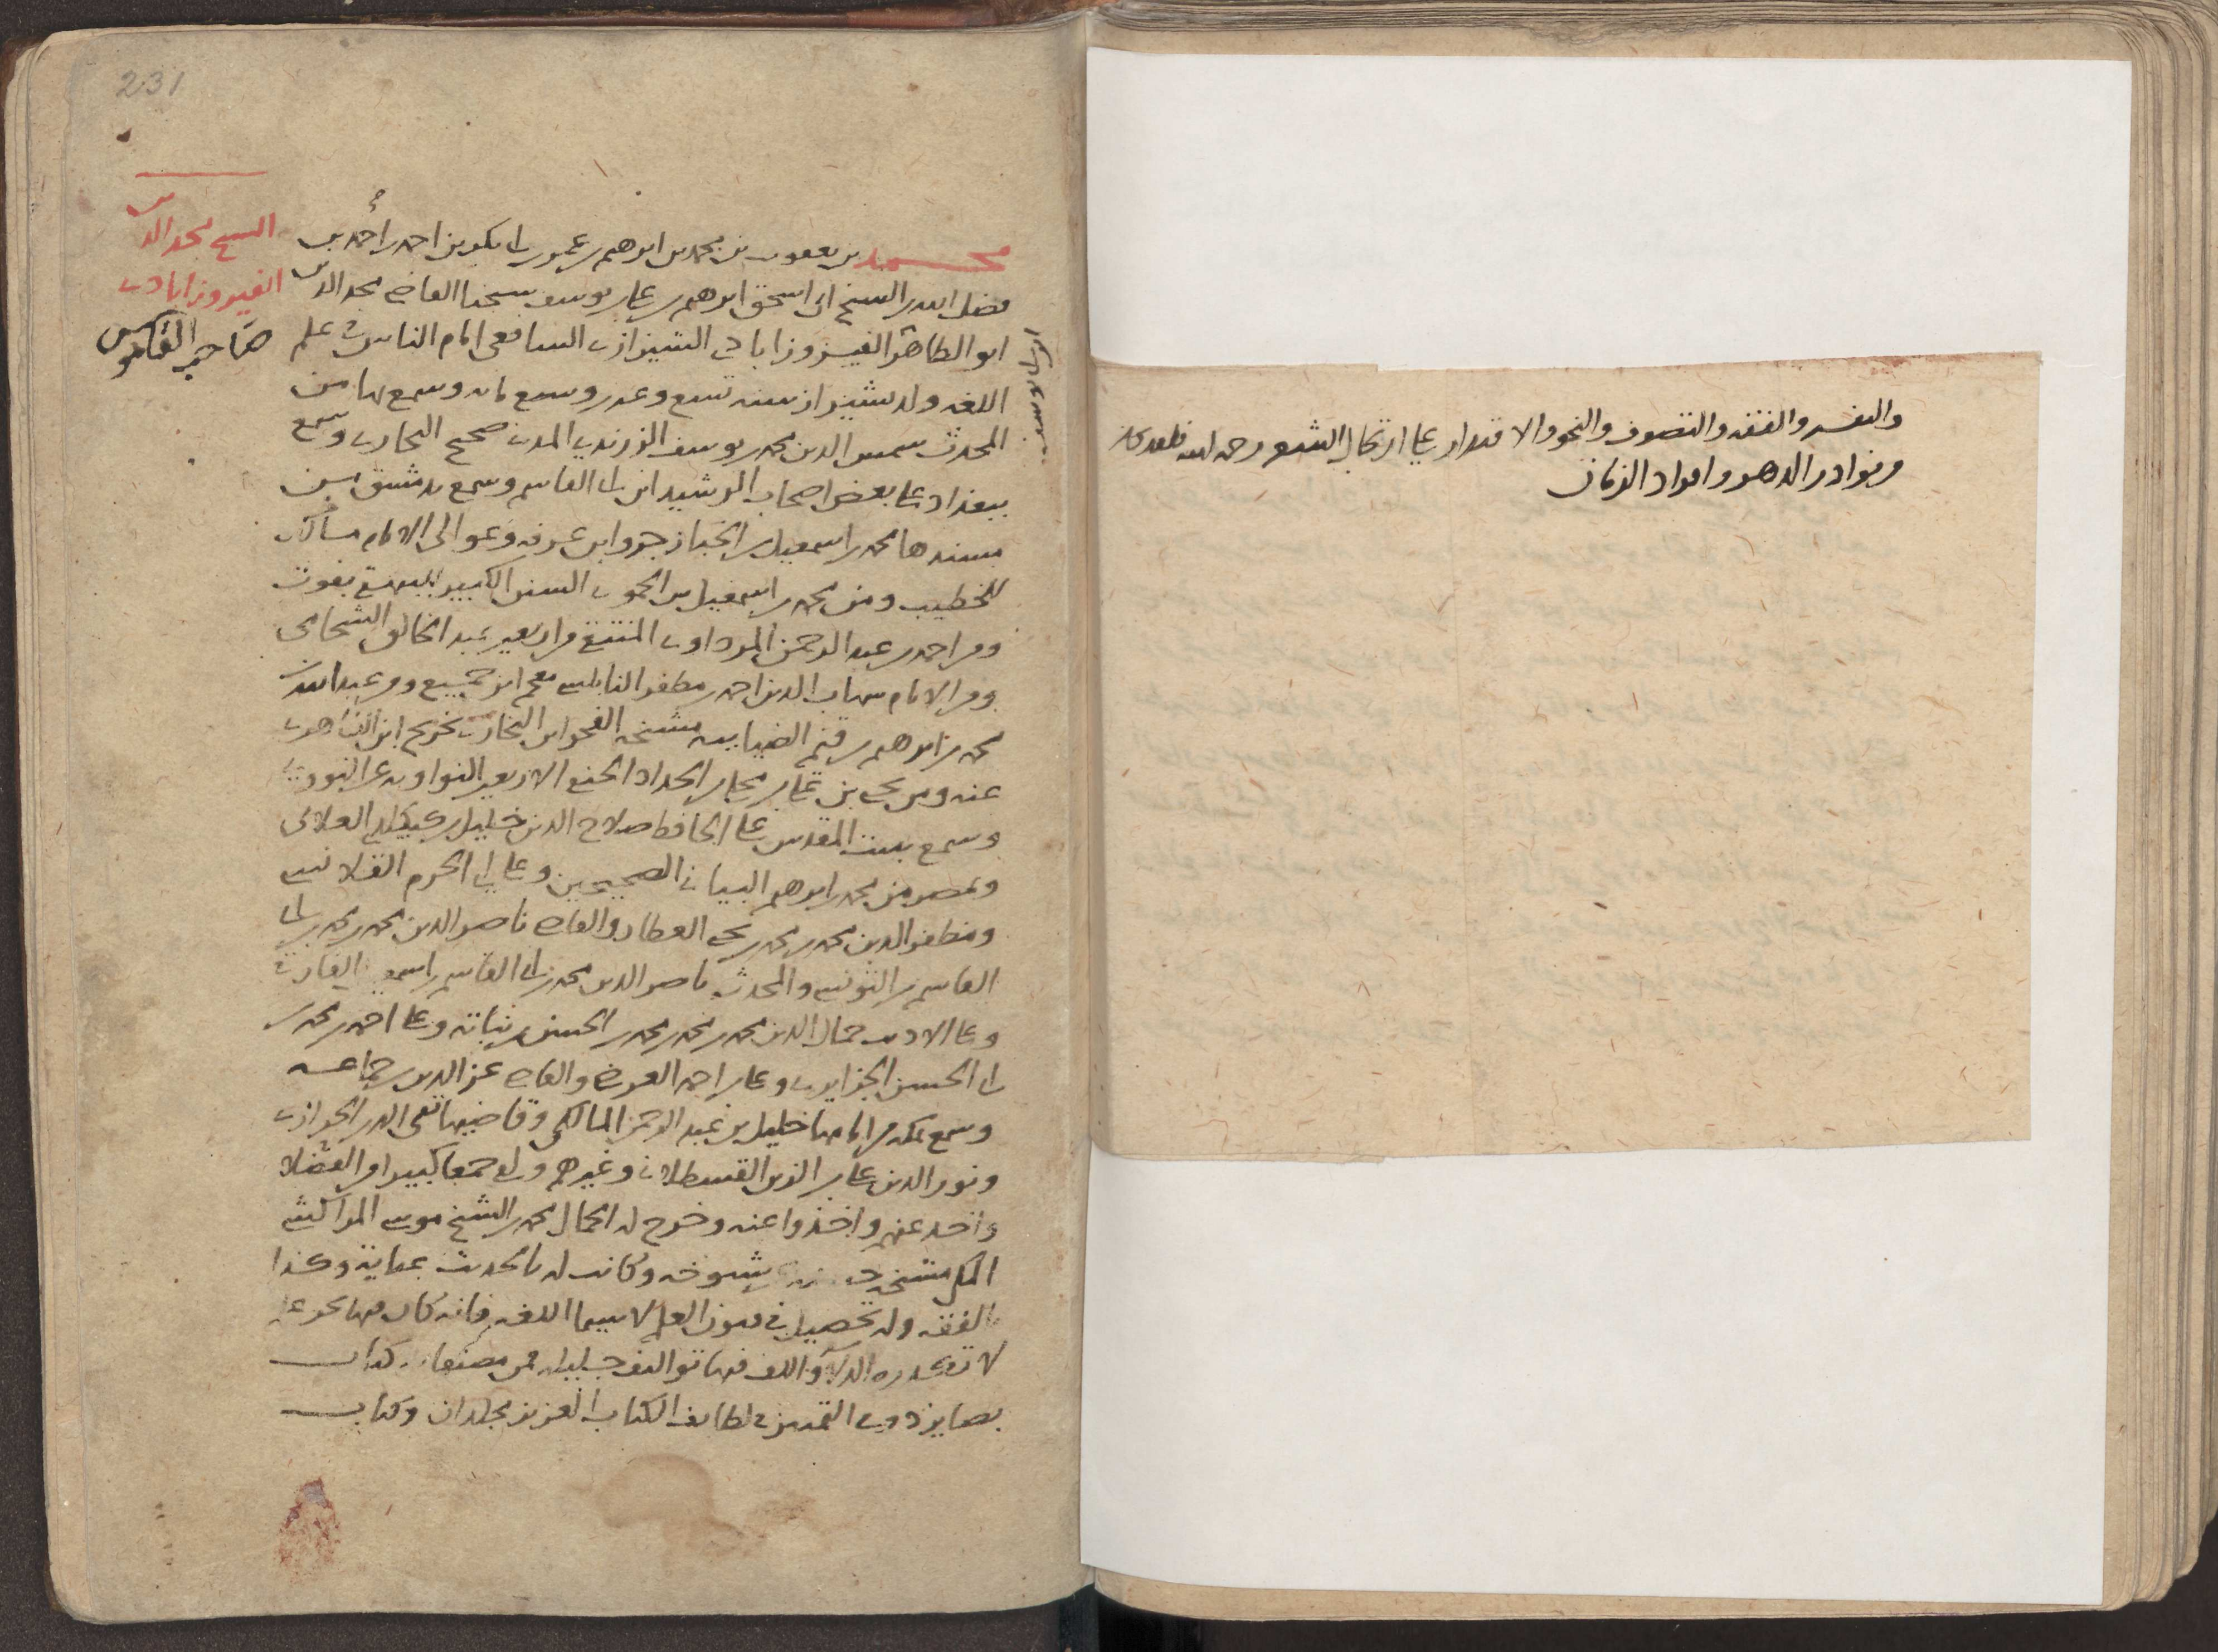 والتفسير والفقه والتصوف والنحو والاقتدار على ارتجال الشعر رحمه الله فلقد كان
من نوادر الدهر وافراد الزمان
231
الشيخ مجد الدين
الفيروزابادي
صاحب القاموس
محمد بن يعقوب بن محمد بن ابرهيم بن عمر بن ابي بكر بن احمد بن
فضل الله بن الشيخ ابي اسحق ابرهيم بن علي بن يوسف شيخنا القاضي مجد الدين
ابو الطاهر الفيروزابادي الشيرازي الشافعي امام الناس في علم
اللغه ولد بشيراز سنه تسع وعشرين وسبع مايه وسمع بها من
المحدث شمس الدين محمد بن يوسف الزرندي المدني صحيح البخاري وسمع
ببغداد على بعض اصحاب الرشيد ابن ابي القاسم وسمع بدمشق من
مسندها محمد بن اسمعيل بن الخباز جزو ابن عرفه وعوالي الامام مالك
للخطيب ومن محمد بن اسمعيل بن الحموي السنن الكبير للبيهقي بفوت
ومن احمد بن عبد الرحمن المرداوي المنتقى من اربعين عبد الخالق الشحامي
ومن الامام شهاب الدين احمد بن مظفر النابلسي معجم ابن جميع ومن عبد الله بن
محمد بن ابرهيم بن قيم الضيائيه مشيخه الفخر ابن البخاري تخريج ابن الظاهري
عنه ومن يحيى بن علي بن مجلي بن الحداد الحنفي الاربعين النواويه عن النووي
وسمع ببيت المقدس على الحافظ صلاح الدين خليل بن كيكلدي العلائي
وبمصر من محمد بن ابرهيم البياني الصحيحين وعلى ابي الحرم القلانسي
ومظفر الدين محمد بن محمد بن يحيى العطار والقاضي ناصر الدين محمد بن محمد بن ابي
القاسم بن التونسي والمحدث ناصر الدين محمد بن ابي القاسم بن اسمعيل الفارقي
وعلى الاديب جمال الدين محمد بن محمد بن محمد بن الحسن بن نباته وعلى احمد بن محمد بن
ابي الحسن الجزايري وعلي بن احمد العرضي والقاضي عز الدين بن جماعه
وسمع بمكه من امامها خليل بن عبد الرحمن المالكي وقاضيها تقي الدين الحرازي
ونور الدين علي بن الزين القسطلاني وغيرهم ولقي جمعا كبيرا من الفضلا
واخذ عنهم واخذوا عنه وخرج له الجمال محمد بن الشيخ موسى المراكشي
المكي مشيخه شيوخه وكانت له بالحديث عنايه وكذا
بالفقه وله تحصيل في فنون العلم لا سيما اللغه فانه كان فيها بحر علم
لا تكدره الدلا والف فيها تواليف جليله فمن مصنفاته كتاب
بصاير ذوي التمييز في لطايف الكتاب العزيز مجلدان وكتاب